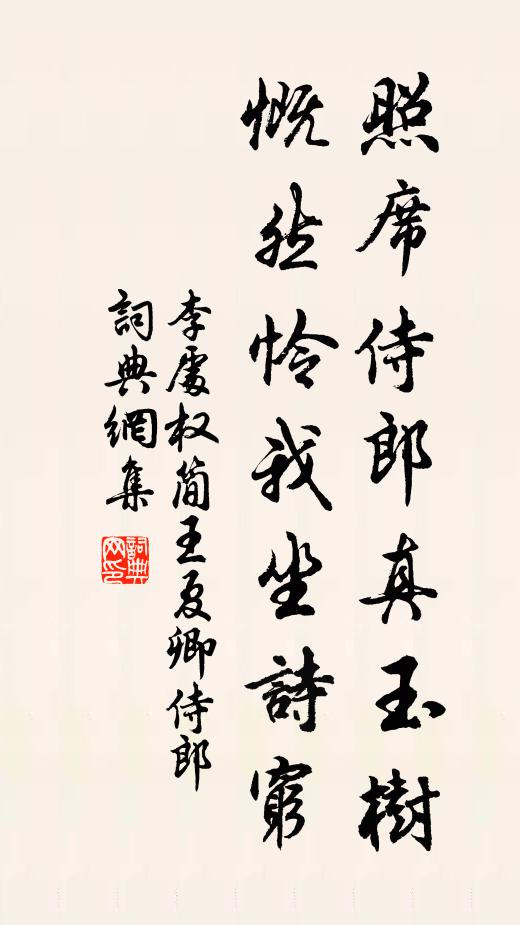 照席侍郎真玉樹
慨然怜我坐詩窮
李處权简王夏卿侍郎
詞典網集
詞典網印